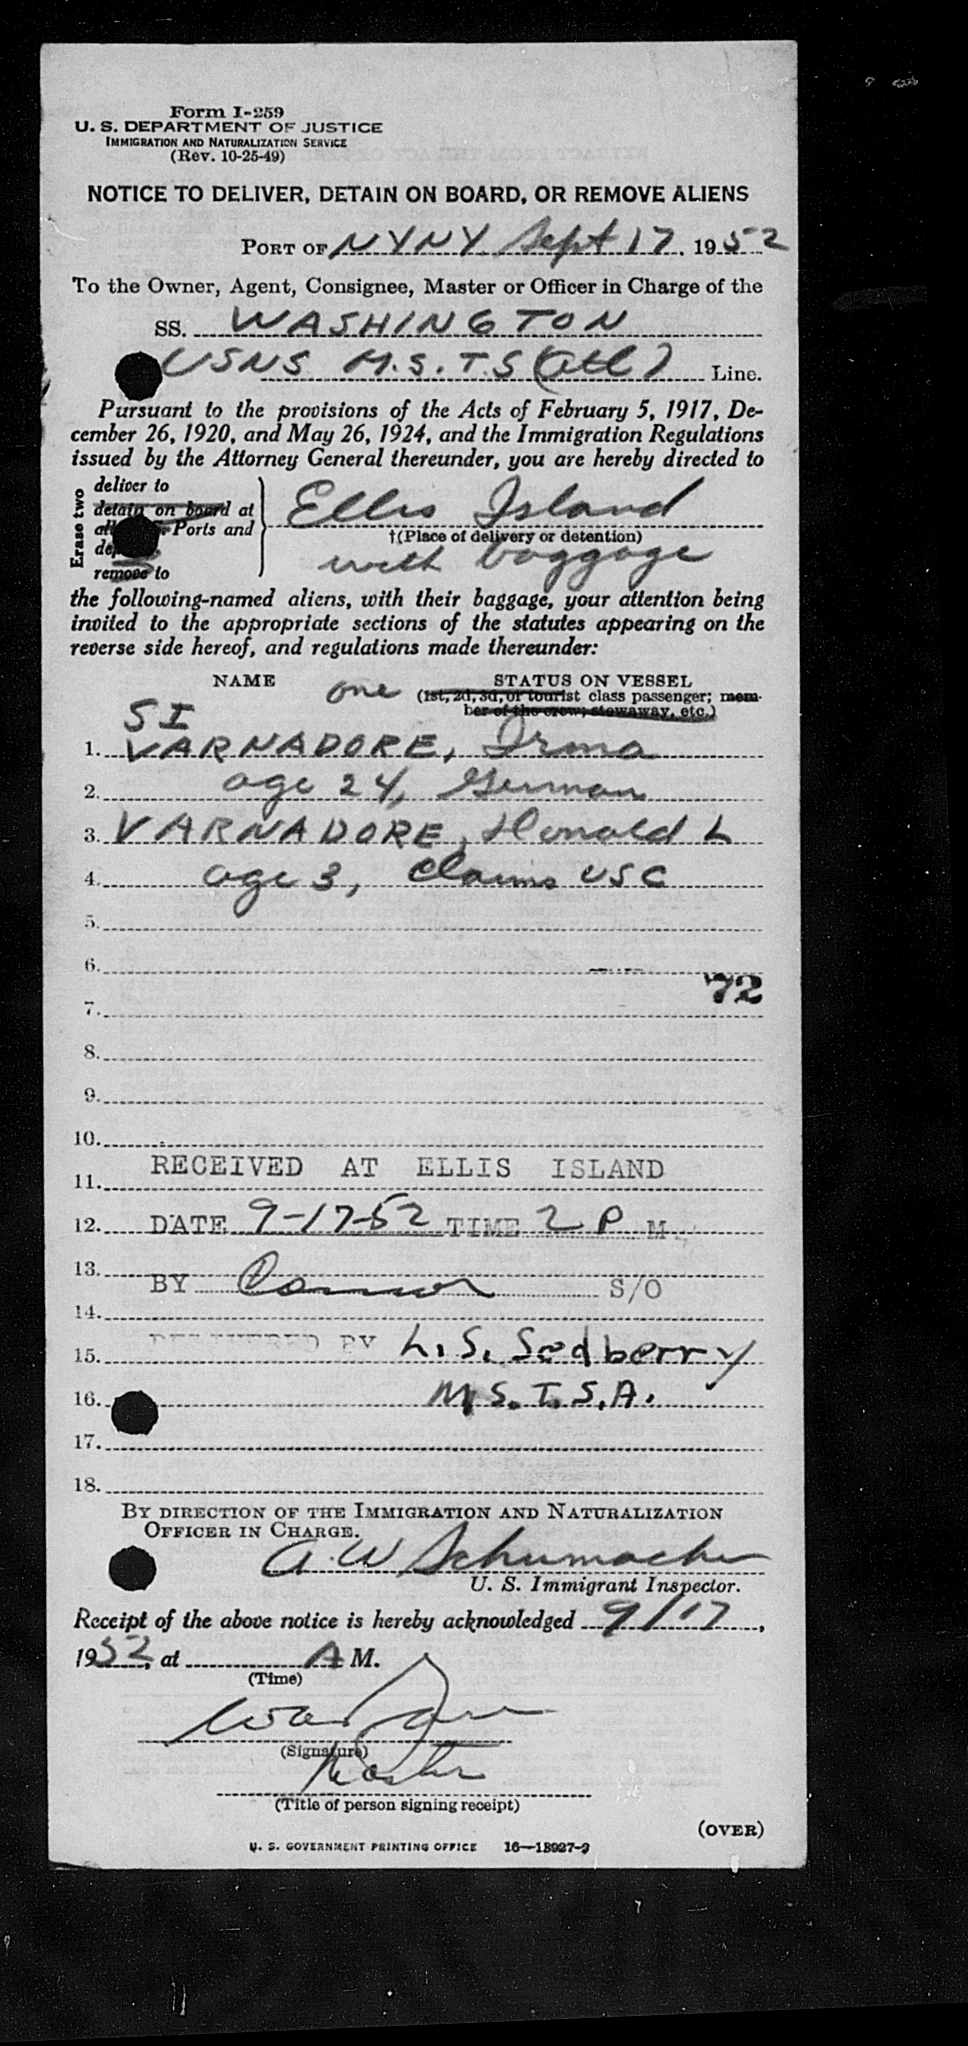 Form I-259
U. S. DEPARTMENT OF JUSTICE
IMMIGRATION AND NATURALIZATION SERVICE
(Rev. 10-25-49)
NOTICE TO DELIVER, DETAIN ON BOARD, OR REMOVE ALIENS
PORT OF NYNY Sept 17, 1952
To the Owner, Agent, Consignee, Master or Officer in Charge of the
SS. WASHINGTON
USNS M.S.T.S (Atl) Line.
Pursuant to the provisions of the Acts of February 5, 1917, De-
cember 26, 1920, and May 26, 1924, and the Immigration Regulations
issued by the Attorney General thereunder, you are hereby directed to
Erase two
deliver to
detain on board at
Ports and
remove to
Ellis Island
†(Place of delivery or detention)
with baggage
the following-named aliens, with their baggage, your attention being
invited to the appropriate sections of the statutes appearing on the
reverse side hereof, and regulations made thereunder:
NAME one STATUS ON VESSEL
(1st, 2d, 3d, or tourist class passenger; mem-
ber of the crew; stowaway, etc.)
SI
1. VARNADORE, Irma
2. age 24, German
3. VARNADORE, Donald L
4. age 3, claims USC
5.
6.
72
7.
8.
9.
10.
RECEIVED AT ELLIS ISLAND
11.
12. DATE 9-17-52 TIME 2 P M.
13.
BY Connor S/O
14.
15. DELIVERED BY L. S. Sedberry
16. M.S.T.S.A.
17.
18.
BY DIRECTION OF THE IMMIGRATION AND NATURALIZATION
OFFICER IN CHARGE.
A. W Schumacher
U. S. Immigrant Inspector.
Receipt of the above notice is hereby acknowledged 9/17,
1952, at A M.
(Time)
(Signature)
Master
(Title of person signing receipt)
(OVER)
U. S. GOVERNMENT PRINTING OFFICE 16—13927-2